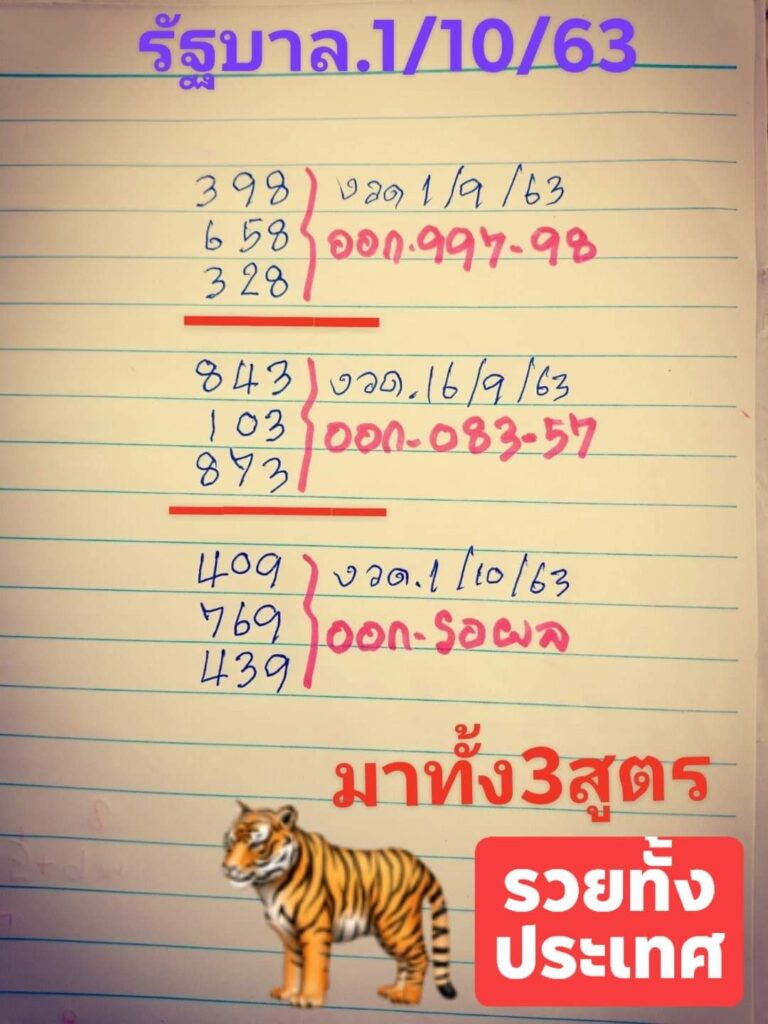 รัฐบาล.1/10/63
398 งวด 1/9/63
658 ออก.997-98
328
843 งวด.16/9/63
103 ออก-083-57
873
409 งวด.1/10/63
769 ออก-รอผล
439
มาทั้ง3สูตร
รวยทั้ง
ประเทศ